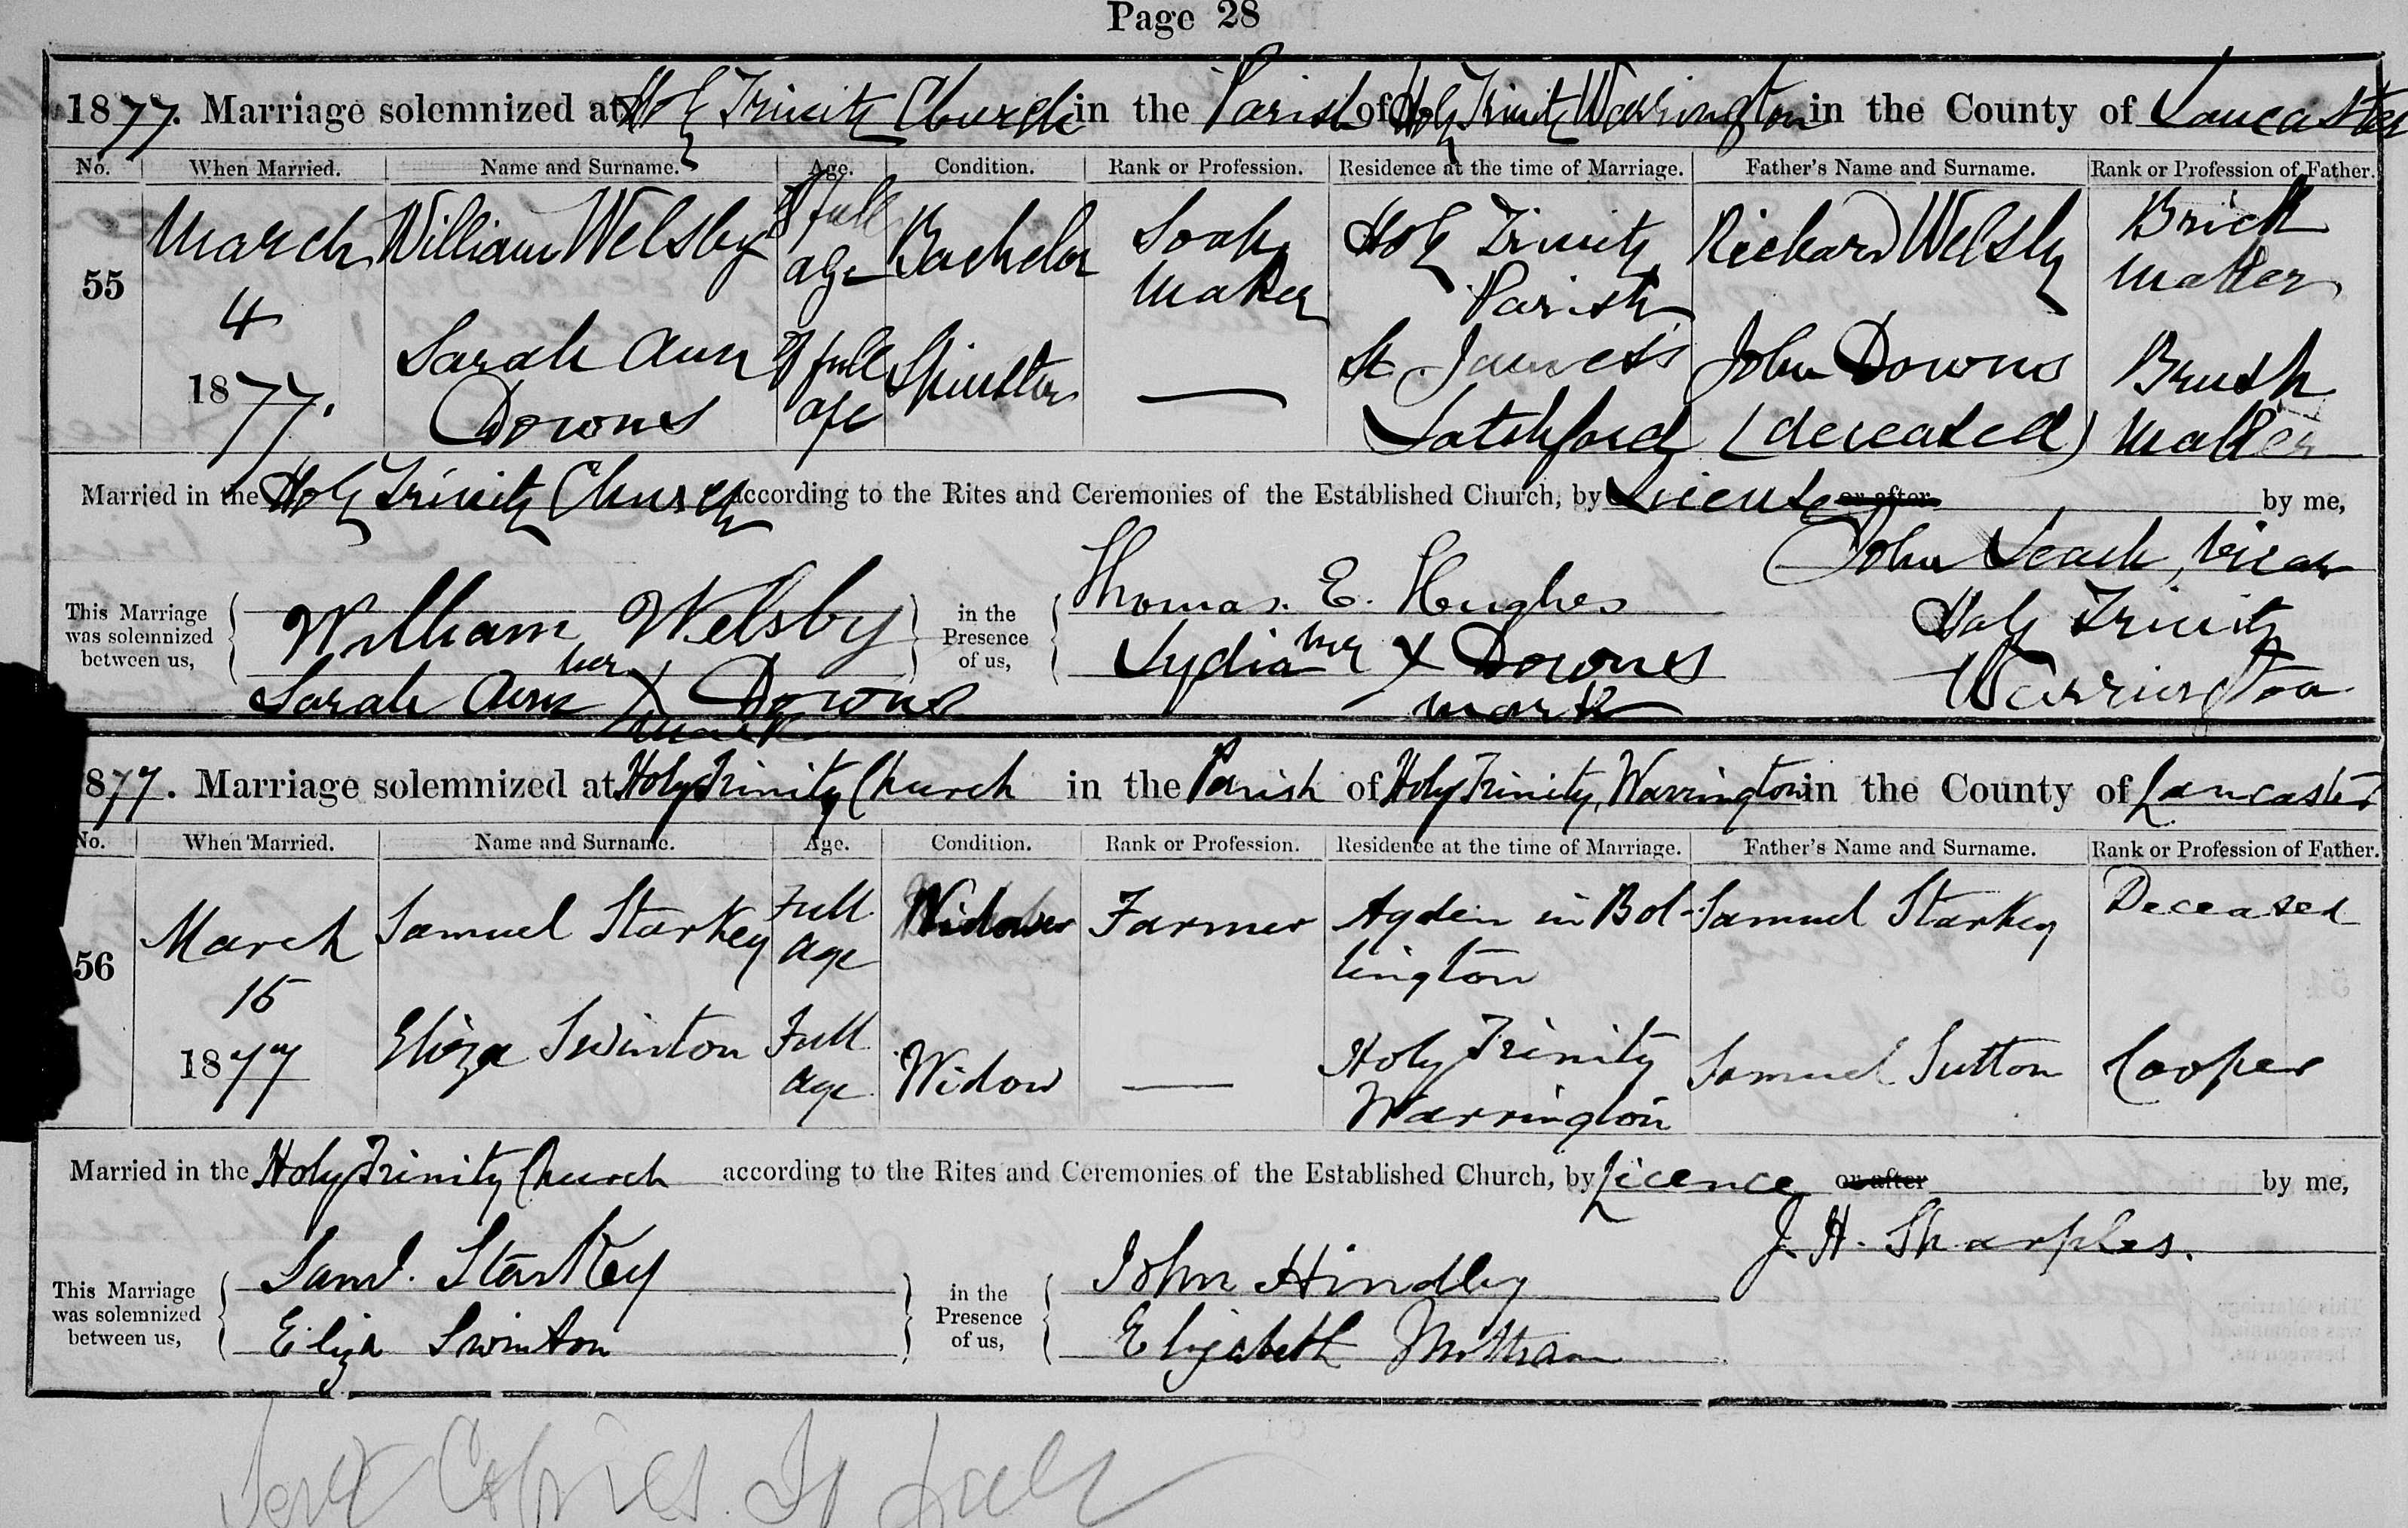 Page 28
1877. Marriage solemnized at Holy Trinity Church in the Parish of Holy Trinity Warrington in the County of Lancaster
No. When Married. Name and Surname. Age. Condition. Rank or Profession. Residence at the time of Marriage. Father's Name and Surname. Rank or Profession of Father.
55 March 4 1877. William Welsby Of full age Bachelor Soap Maker Holy Trinity Parish Richard Welsby Brick Maker
Sarah Ann Downs Of full age Spinster — St. James's Latchford John Downs (deceased) Brush Maker
Married in the Holy Trinity Church according to the Rites and Ceremonies of the Established Church, by Licence or after by me,
John Leach, Vicar
Holy Trinity
Warrington
This Marriage was solemnized between us, William Welsby in the Presence of us, Thomas. E. Hughes
Sarah Ann her X mark Downs Lydia her X mark Downs
877. Marriage solemnized at Holy Trinity Church in the Parish of Holy Trinity, Warrington in the County of Lancaster
No. When Married. Name and Surname. Age. Condition. Rank or Profession. Residence at the time of Marriage. Father's Name and Surname. Rank or Profession of Father.
56 March 15 1877 Samuel Starkey Full age Widower Farmer Agden in Bollington Samuel Starkey Deceased
Eliza Swinton Full age Widow — Holy Trinity Warrington Samuel Sutton Cooper
Married in the Holy Trinity Church according to the Rites and Ceremonies of the Established Church, by Licence or after by me,
J. H. Sharples.
This Marriage was solemnized between us, Saml. Starkey in the Presence of us, John Hindley
Eliza Swinton Elizabeth Mottram
Copies